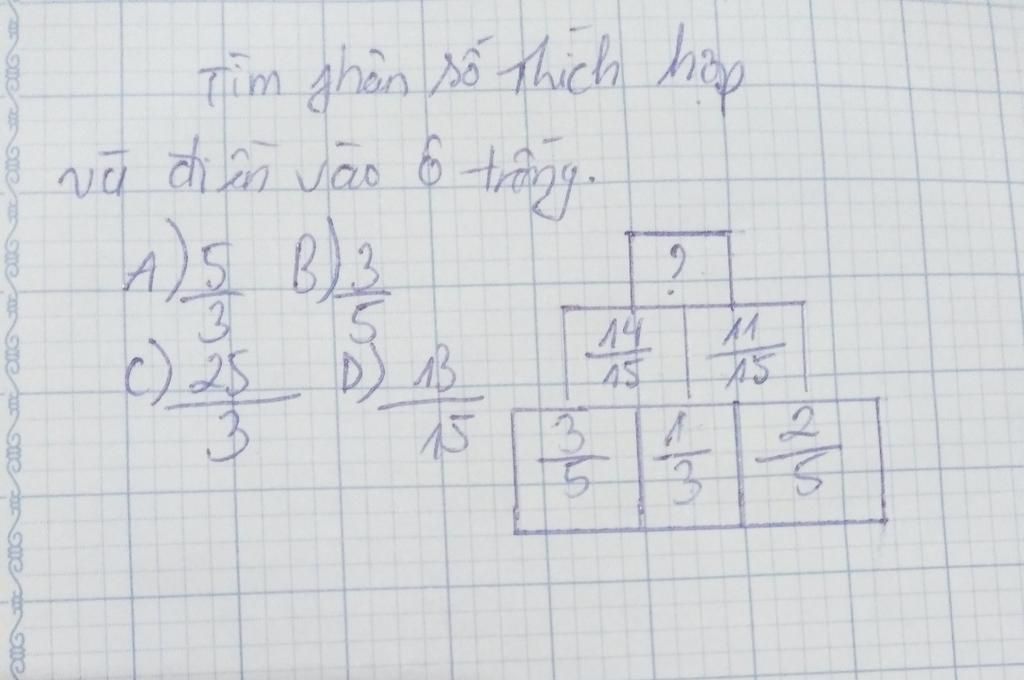 Tìm phân số thích hợp
và điền vào ô trống.
A) 5/3 B) 3/5
C) 25/3 D) 13/15
?
14/15 11/15
3/5 1/3 2/5